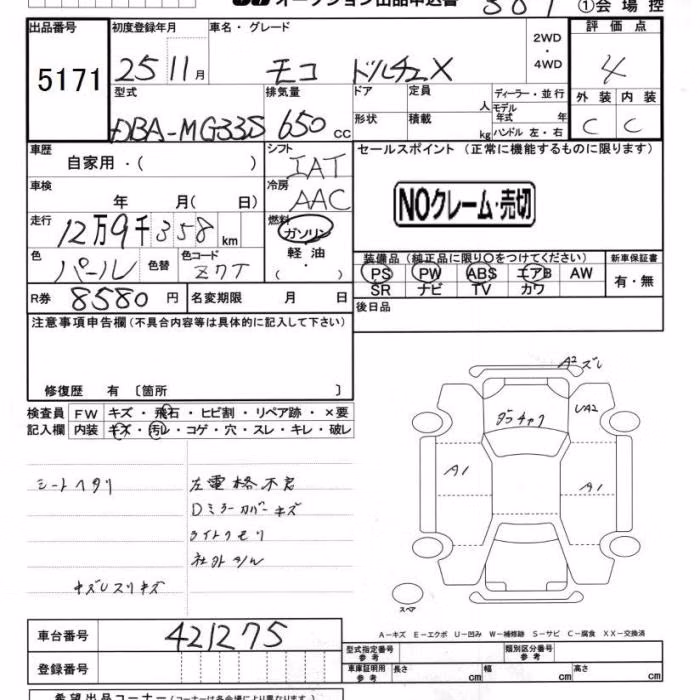 オークション出品申込書 ①会場控
出品番号 初度登録年月 車名・グレード 2WD ・ 4WD 評価点
5171 25 11月 モコ ドルチェX 4
型式 排気量 ドア 定員 人 ディーラー・並行 外装 内装
DBA-MG33S 650 cc 形状 積載 kg モデル年式 年 ハンドル 左・右 C C
車歴 自家用・( ) シフト IAT セールスポイント (正常に機能するものに限ります)
車検 年 月( 日) 冷房 AAC NOクレーム・売切
走行 12万9千358 km 燃料 ガソリン
軽油
・( )
色 パール 色替 色コード Z7T
装備品 (純正品に限り○をつけてください) 新車保証書
PS PW ABS エアB AW 有・無
SR ナビ TV カワ
R券 8580円 名変期限 月 日 後日品
注意事項申告欄(不具合内容等は具体的に記入して下さい)
修復歴 有 〔箇所 〕
検査員 FW キズ・飛石・ヒビ割・リペア跡・×要
記入欄 内装 キズ・汚レ・コゲ・穴・スレ・キレ・破レ
シートヘタリ 左電格不良
Dミラーカバーキズ
ライトクモリ
キズUスリキズ
A2 ズレ
UA2
A1 A1
スペア
A-キズ E-エクボ U-凹み W-補修跡 S-サビ C-腐食 XX-交換済
車台番号 421275
登録番号
型式指定番号 参考 類別区分番号 参考
車庫証明用 参考 長さ cm 幅 cm 高さ cm
希望出品コーナー(コーナーは各会場により異なります)